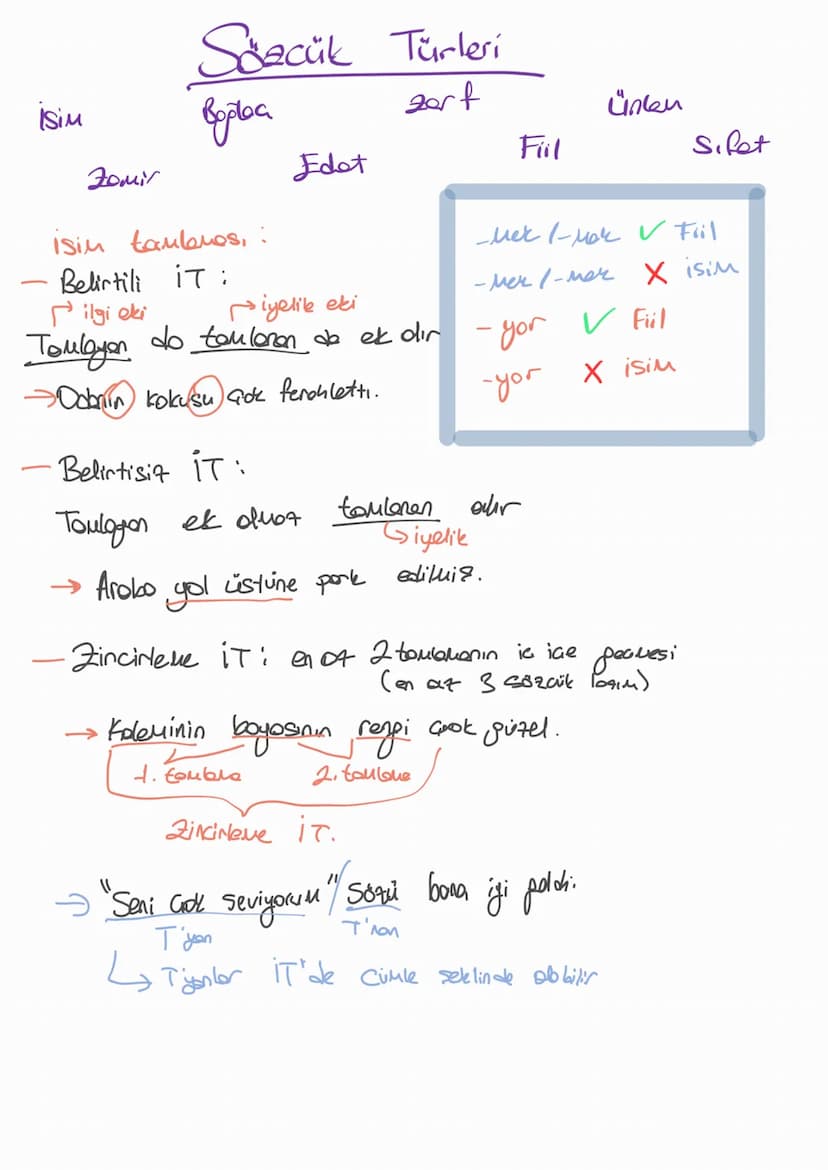 Sözcük Türleri
İsim Bağlaç Zarf Ünlem
Zamir Edat Fiil Sıfat
-mek /-mak ✓ Fiil
-mek /-mak X isim
- yor ✓ Fiil
-yor X isim
isim tamlaması :
— Belirtili İT :
ilgi eki iyelik eki
Tamlayan da tamlanan da ek alır
→ Odanın kokusu çok ferahlattı.
— Belirtisiz İT :
Tamlayan ek almaz tamlanan alır
↳ iyelik
→ Araba yol üstüne park edilmiş.
— Zincirleme İT : en az 2 tamlamanın iç içe geçmesi
(en az 3 sözcük lazım)
→ Kaleminin boyasının rengi çok güzel.
1. tamlama 2. tamlama
Zincirleme İT.
→ "Seni çok seviyorum" / sözü bana iyi geldi.
T'yan T'nan
↳ T'yanlar İT'de cümle şeklinde olabilir